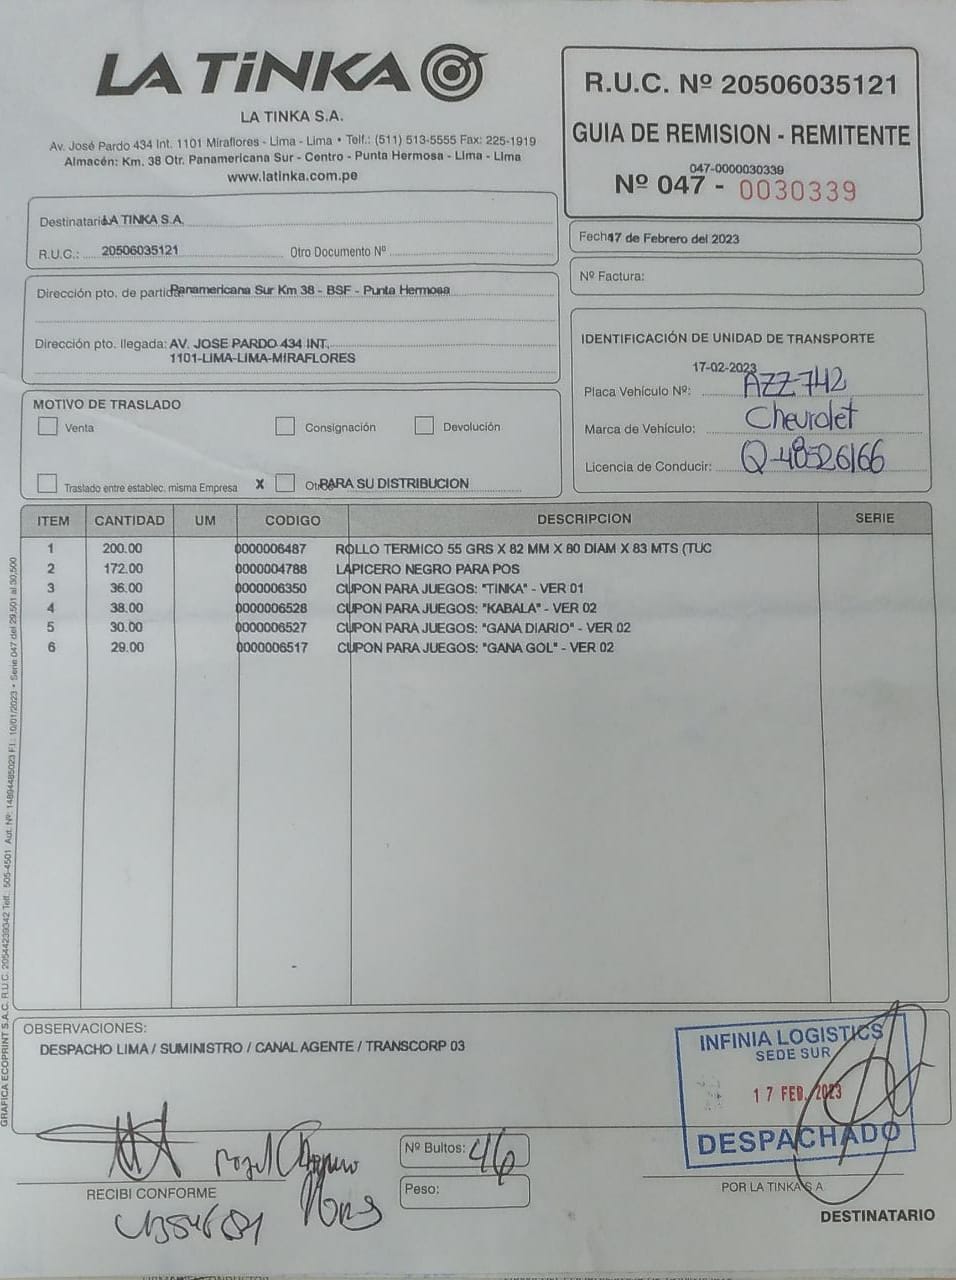 LA TiNKA
LA TINKA S.A.
Av. José Pardo 434 Int. 1101 Miraflores - Lima - Lima • Telf.: (511) 513-5555 Fax: 225-1919
Almacén: Km. 38 Otr. Panamericana Sur - Centro - Punta Hermosa - Lima - Lima
www.latinka.com.pe
R.U.C. Nº 20506035121
GUIA DE REMISION - REMITENTE
047-0000030339
Nº 047 - 0030339
Destinatario LA TINKA S.A.
R.U.C.: 20506035121 Otro Documento Nº
Fecha 17 de Febrero del 2023
Nº Factura:
Dirección pto. de partida: Panamericana Sur Km 38 - BSF - Punta Hermosa
Dirección pto. llegada: AV. JOSE PARDO 434 INT.
1101-LIMA-LIMA-MIRAFLORES
IDENTIFICACIÓN DE UNIDAD DE TRANSPORTE
17-02-2023
Placa Vehículo Nº: AZZ-742
Marca de Vehículo: Chevrolet
Licencia de Conducir: Q-48526166
MOTIVO DE TRASLADO
Venta Consignación Devolución
Traslado entre establec. misma Empresa X Otros PARA SU DISTRIBUCION
ITEM CANTIDAD UM CODIGO DESCRIPCION SERIE
1 200.00 0000006487 ROLLO TERMICO 55 GRS X 82 MM X 80 DIAM X 83 MTS (TUC
2 172.00 0000004788 LAPICERO NEGRO PARA POS
3 36.00 0000006350 CUPON PARA JUEGOS: "TINKA" - VER 01
4 38.00 0000006528 CUPON PARA JUEGOS: "KABALA" - VER 02
5 30.00 0000006527 CUPON PARA JUEGOS: "GANA DIARIO" - VER 02
6 29.00 0000006517 CUPON PARA JUEGOS: "GANA GOL" - VER 02
GRAFICA ECOPRINT S.A.C. R.U.C. 20544239342 Telf.: 505-4501 Aut. Nº: 14894485023 F.I.: 10/01/2023 • Serie 047 del 29,501 al 30,500
OBSERVACIONES:
DESPACHO LIMA / SUMINISTRO / CANAL AGENTE / TRANSCORP 03
INFINIA LOGISTICS
SEDE SUR
17 FEB. 2023
DESPACHADO
Nº Bultos: 46
Peso:
RECIBI CONFORME
POR LA TINKA S.A.
DESTINATARIO